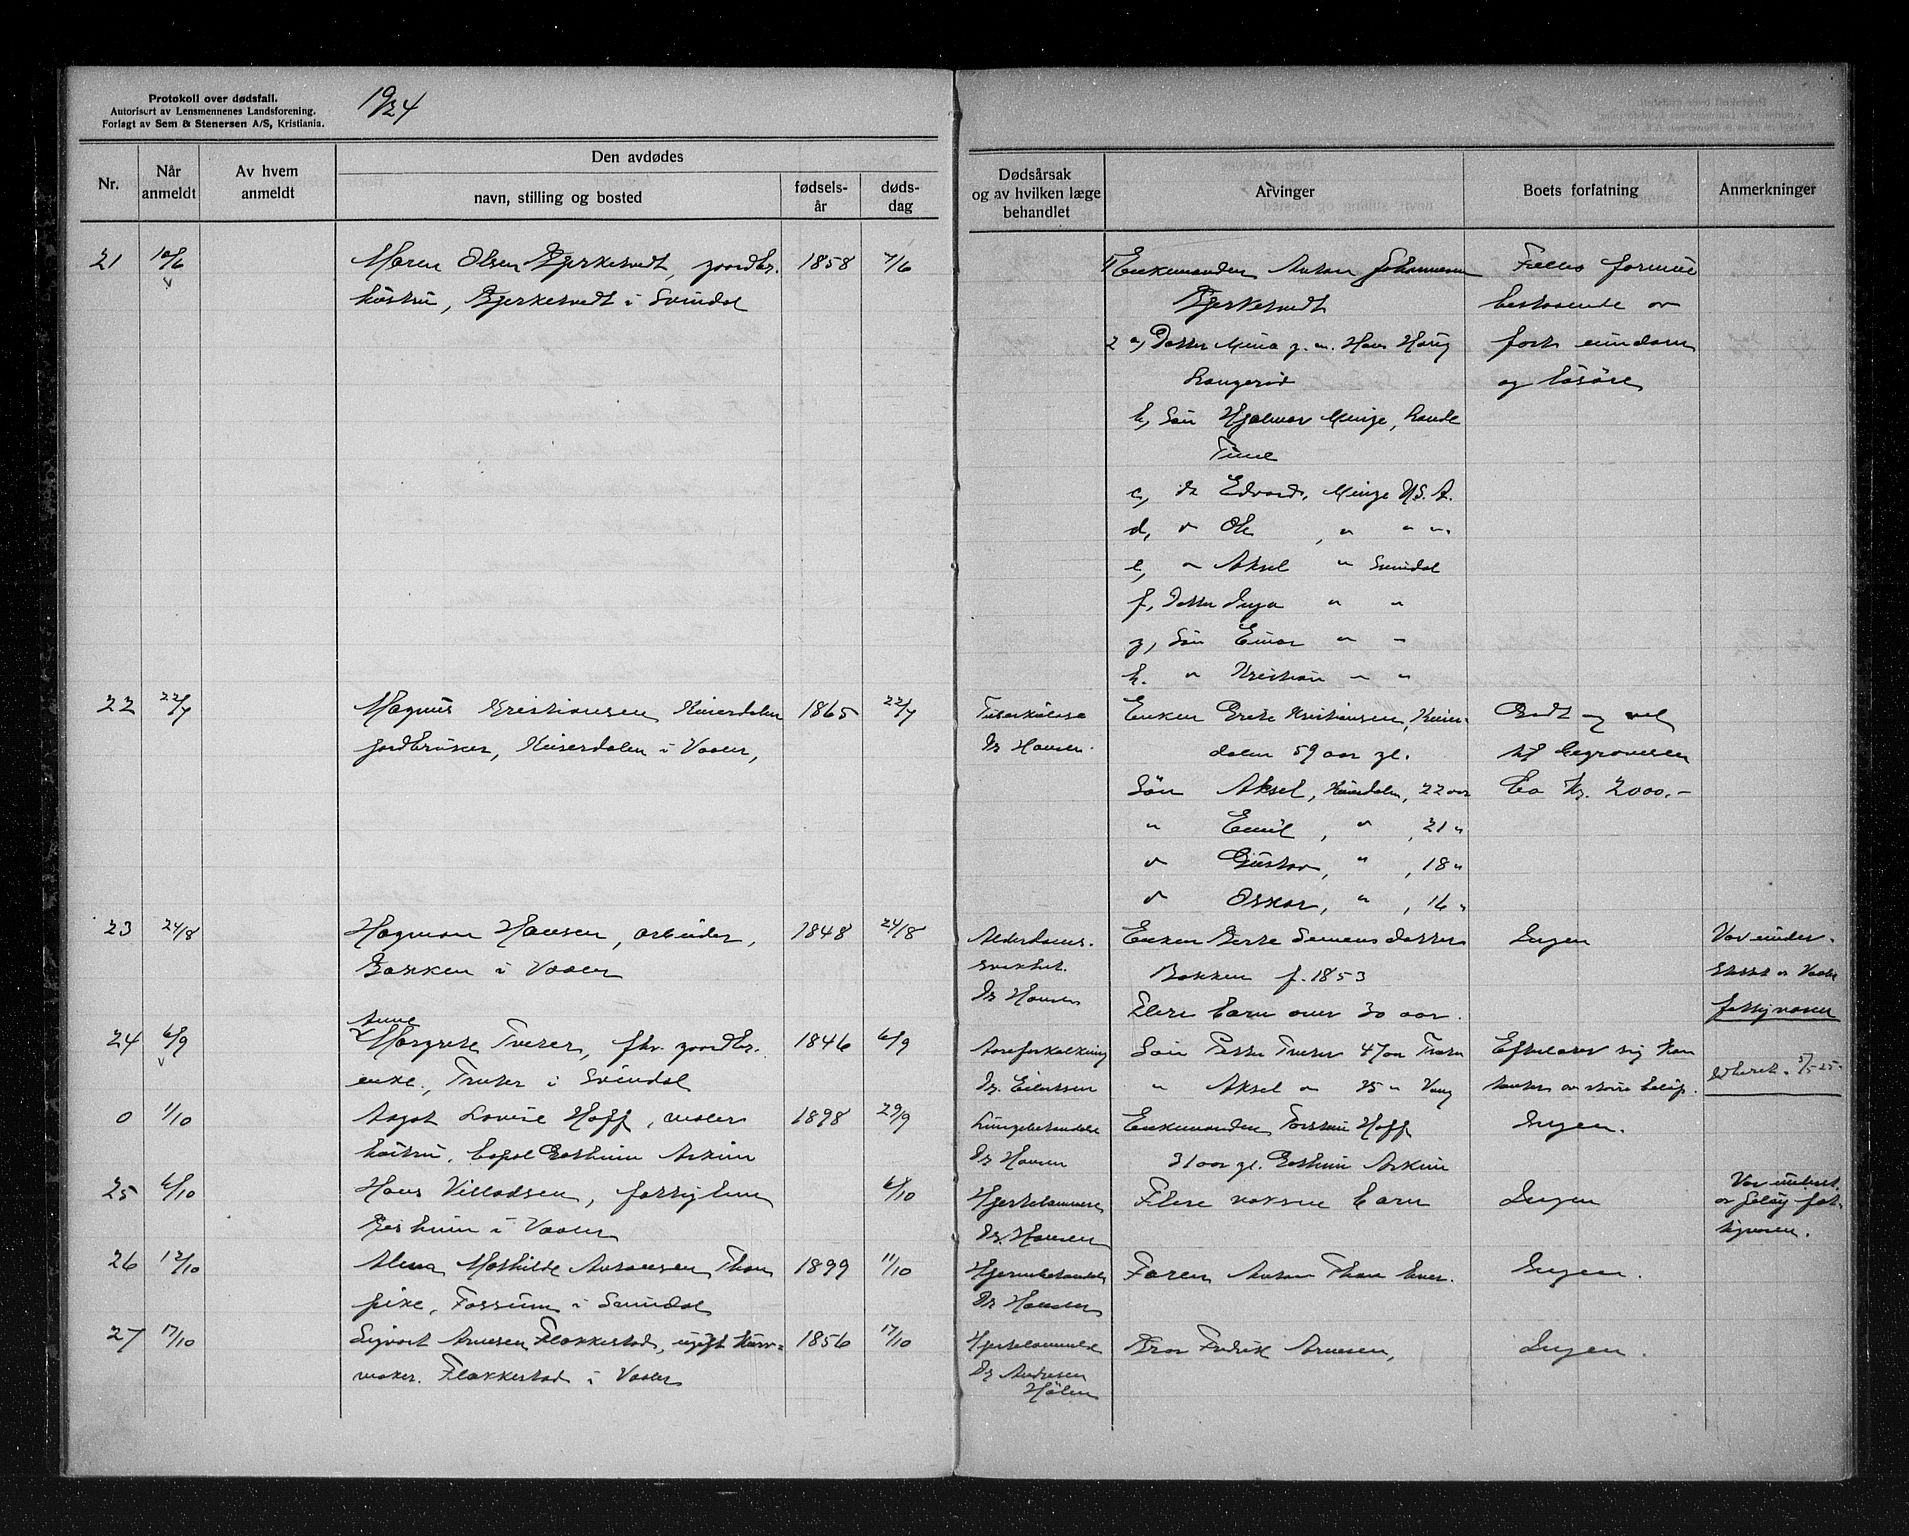 Protokoll over dødsfall.
Autorisert av Lensmennenes Landsforening.
Forlagt av Sem & Stenersen A/S, Kristiania.
1924
Nr.
Når anmeldt
Av hvem anmeldt
Den avdødes
navn, stilling og bosted
fødsels-år
døds-dag
Dødsårsak og av hvilken læge behandlet
Arvinger
Boets forfatning
Anmerkninger
21 10/6 Maren Olsen Bjerketvedt, gaardbr. 1858 7/6
hustru, Bjerketvedt i Svindal
1 Enkemanden Anton Johannesen
Bjerketvedt
2 a, Datter Mina g. m. Hans Haug
Langerød
b, Søn Hjalmar Minge,
Tune
c, do Edvard, Minge U.S.A.
d, " Ole , " " "
e, " Aksel " Svindal
f, Datter Inga " "
g, Søn Einar " "
h. " Kristian " "
Felles formue
bestaaende av
fast eiendom
og løsøre
22 22/7 Magnus Kristiansen Kuserdalen 1865 22/7
jordbruker, Kuserdalen i Vaaler,
Tuberkulose
Dr Hansen.
Enken Grete Kristiansen,
dalen 59 aar gl.
Søn Aksel, 22 aar
" Emil, " , 21 "
" Gustav, " , 18 "
" Oskar, " , 16 "
Godt og vel
til begravelsen
Ca Kr. 2000.-
23 24/8 Hagman Hansen, arbeider, 1848 24/8
Bakken i Vaaler
Alderdoms-
svakhet.
Dr Hansen
Enken Berte Simensdatter
Bakken f. 1853
Flere barn over 30 aar.
Ingen
Var under-
støttet av Vaaler
fattigvæsen
24 6/9 Anne
Margrete Tveter, fhv. gaardbr. 1846 6/9
enke, Tveter i Svindal
Aareforkalkning
Dr. Eilertsen
Søn Petter Tveter 47 aar
" Aksel " 25 "
Efterlater sig kon
tanter av større beløp.
0 1/10 Aagot Lovise Hoff, maler 1898 29/9
hustru, Eastheim Askim
Lungebetændelse
Dr Hansen
Enkemanden Torstein Hoff
31 aar gl. Eastheim Askim
Ingen.
25 6/10 Hans Villadsen, fattiglem 6/10
i Vaaler
Hjertelammelse
Dr. Hansen
Flere voksne barn
Ingen
Var underst.
av fat-
tigvæsen.
26 12/10 Alma Mathilde Antonsen Thon 1899 11/10
pike, Fossum i Svindal
Hjernebetændelse
Dr Hansen
Faren Anton Thon lever.
Ingen.
27 17/10 Sigvart Arnesen Flakkestad, ugift kurv- 1856 17/10
maker. Flakkestad i Vaaler
Hjertelammelse
Dr Andresen
Hølen
Bror Fredrik Arnesen,
Ingen.